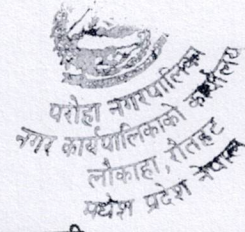 परोहा नगरपालिका
नगर कार्यपालिकाको कार्यालय
लौकाहा, रौतहट
मधेश प्रदेश नेपाल